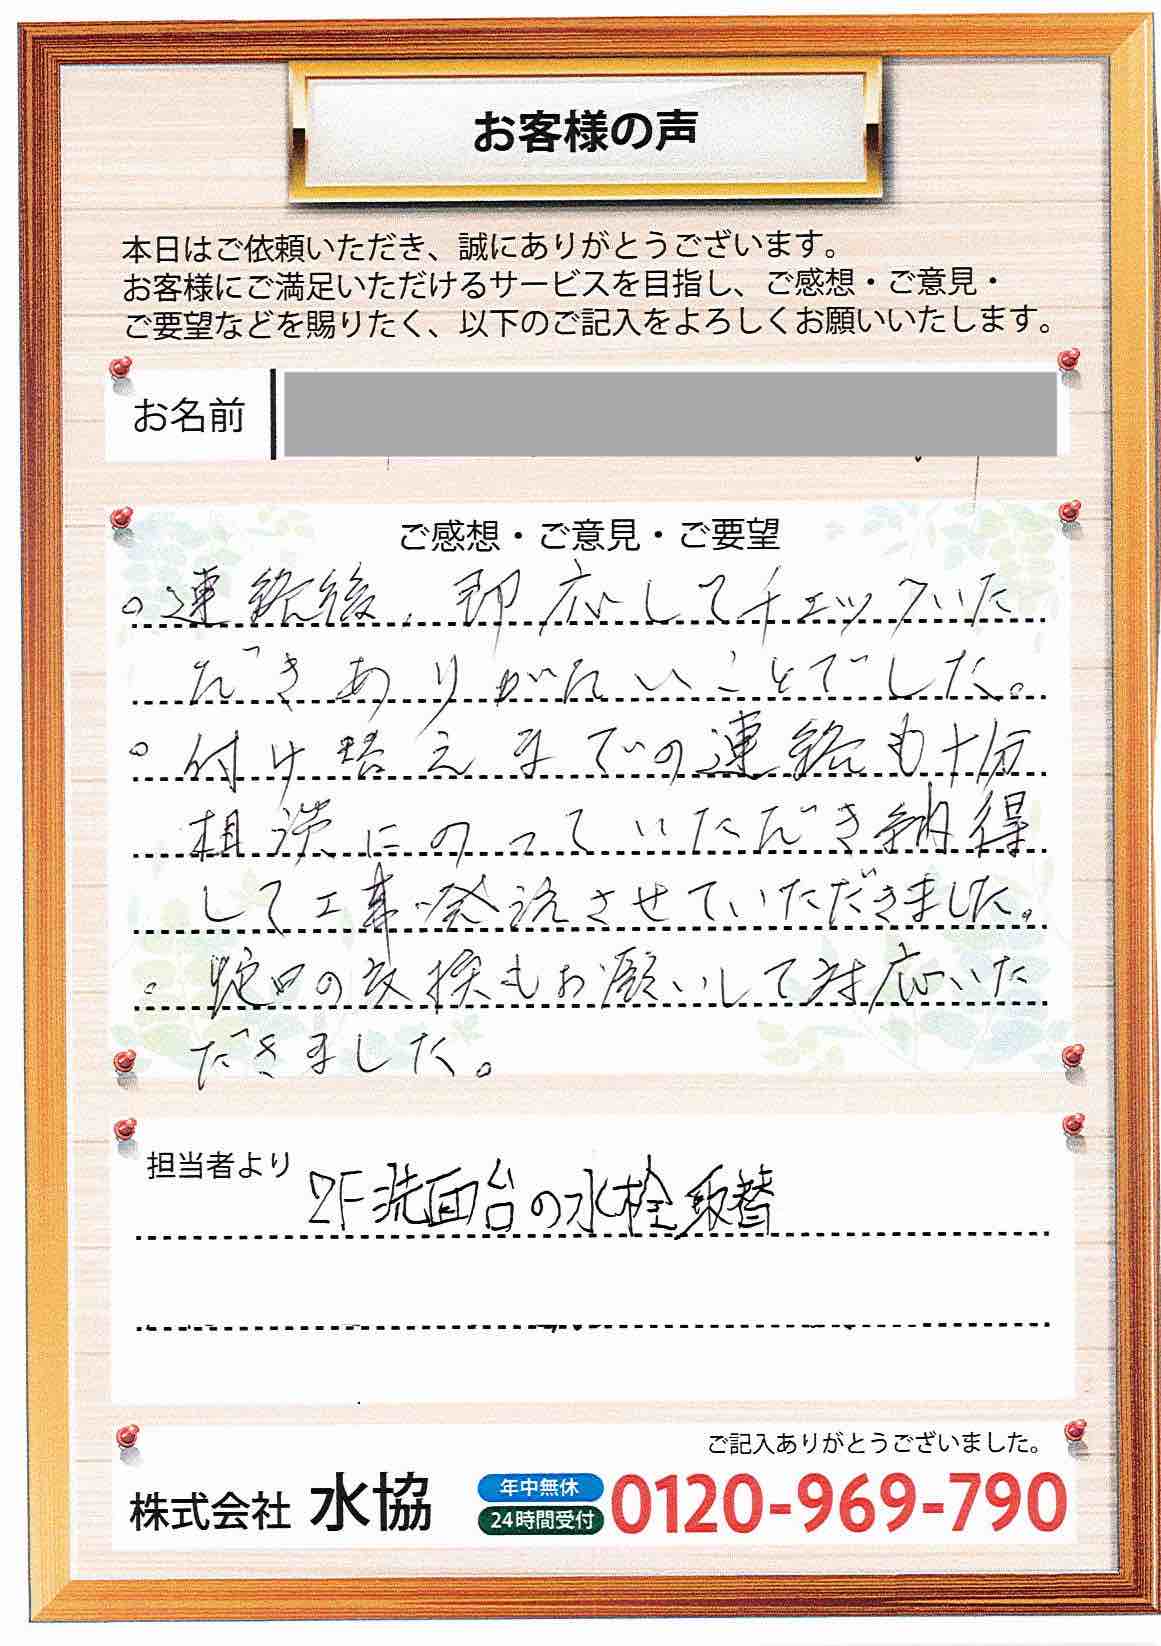 お客様の声
本日はご依頼いただき、誠にありがとうございます。
お客様にご満足いただけるサービスを目指し、ご感想・ご意見・
ご要望などを賜りたく、以下のご記入をよろしくお願いいたします。
お名前
ご感想・ご意見・ご要望
○連絡後、即応してチェックいた
だきありがたいことでした。
○付け替えまでの連絡も十分
相談にのっていただき納得
して工事発注させていただきました。
○蛇口の交換もお願いして対応いた
だきました。
担当者より
2F洗面台の水栓取替
ご記入ありがとうございました。
株式会社 水協
年中無休
24時間受付
0120-969-790